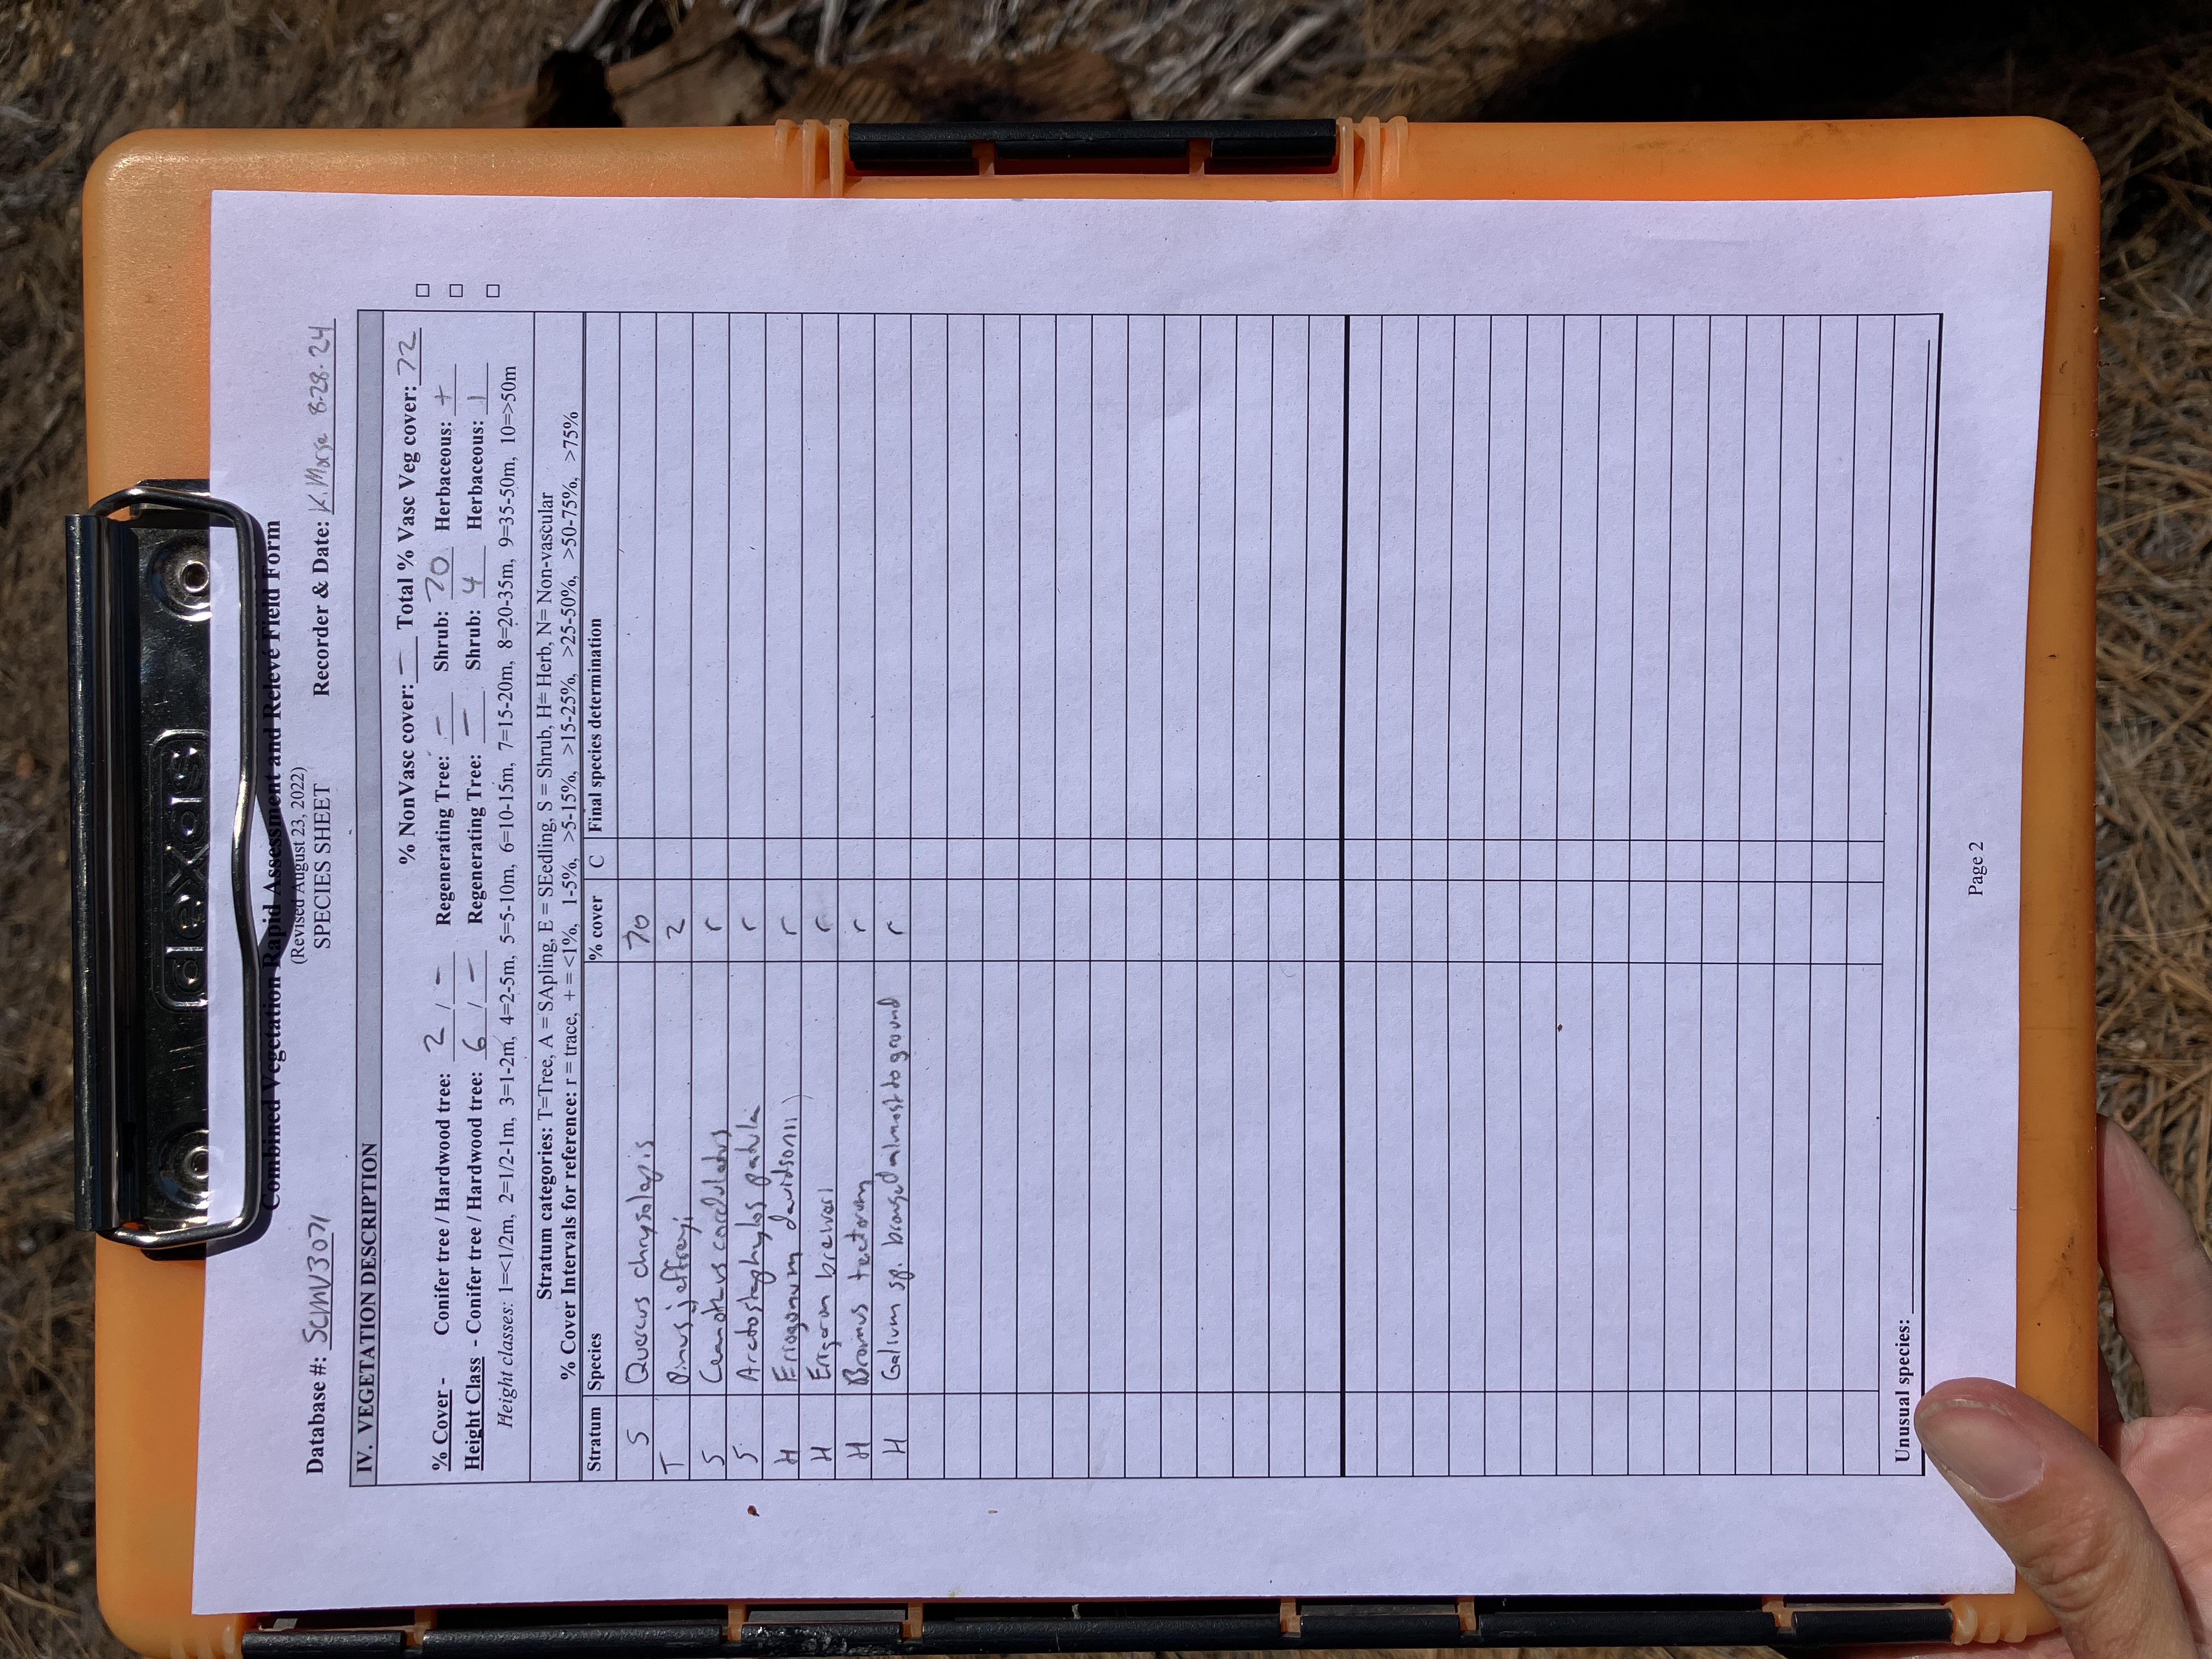 dexas
Combined Vegetation Rapid Assessment and Relevé Field Form
(Revised August 23, 2022)
SPECIES SHEET
Database #: SCMV3071 Recorder & Date: K. Morse 8-28-24
IV. VEGETATION DESCRIPTION
% NonVasc cover: — Total % Vasc Veg cover: 72 □
% Cover - Conifer tree / Hardwood tree: 2 / - Regenerating Tree: — Shrub: 70 Herbaceous: + □
Height Class - Conifer tree / Hardwood tree: 6 / - Regenerating Tree: — Shrub: 4 Herbaceous: 1 □
Height classes: 1=<1/2m, 2=1/2-1m, 3=1-2m, 4=2-5m, 5=5-10m, 6=10-15m, 7=15-20m, 8=20-35m, 9=35-50m, 10=>50m
Stratum categories: T=Tree, A = SApling, E = SEedling, S = Shrub, H= Herb, N= Non-vascular
% Cover Intervals for reference: r = trace, + = <1%, 1-5%, >5-15%, >15-25%, >25-50%, >50-75%, >75%
Stratum Species % cover C Final species determination
S Quercus chrysolepis 70
T Pinus jeffreyi 2
S Ceanothus cordulatus r
S Arctostaphylos patula r
H Eriogonum davidsonii r
H Erigeron breweri r
H Bromus tectorum r
H Galium sp. browsed almost to ground r
Unusual species:
Page 2